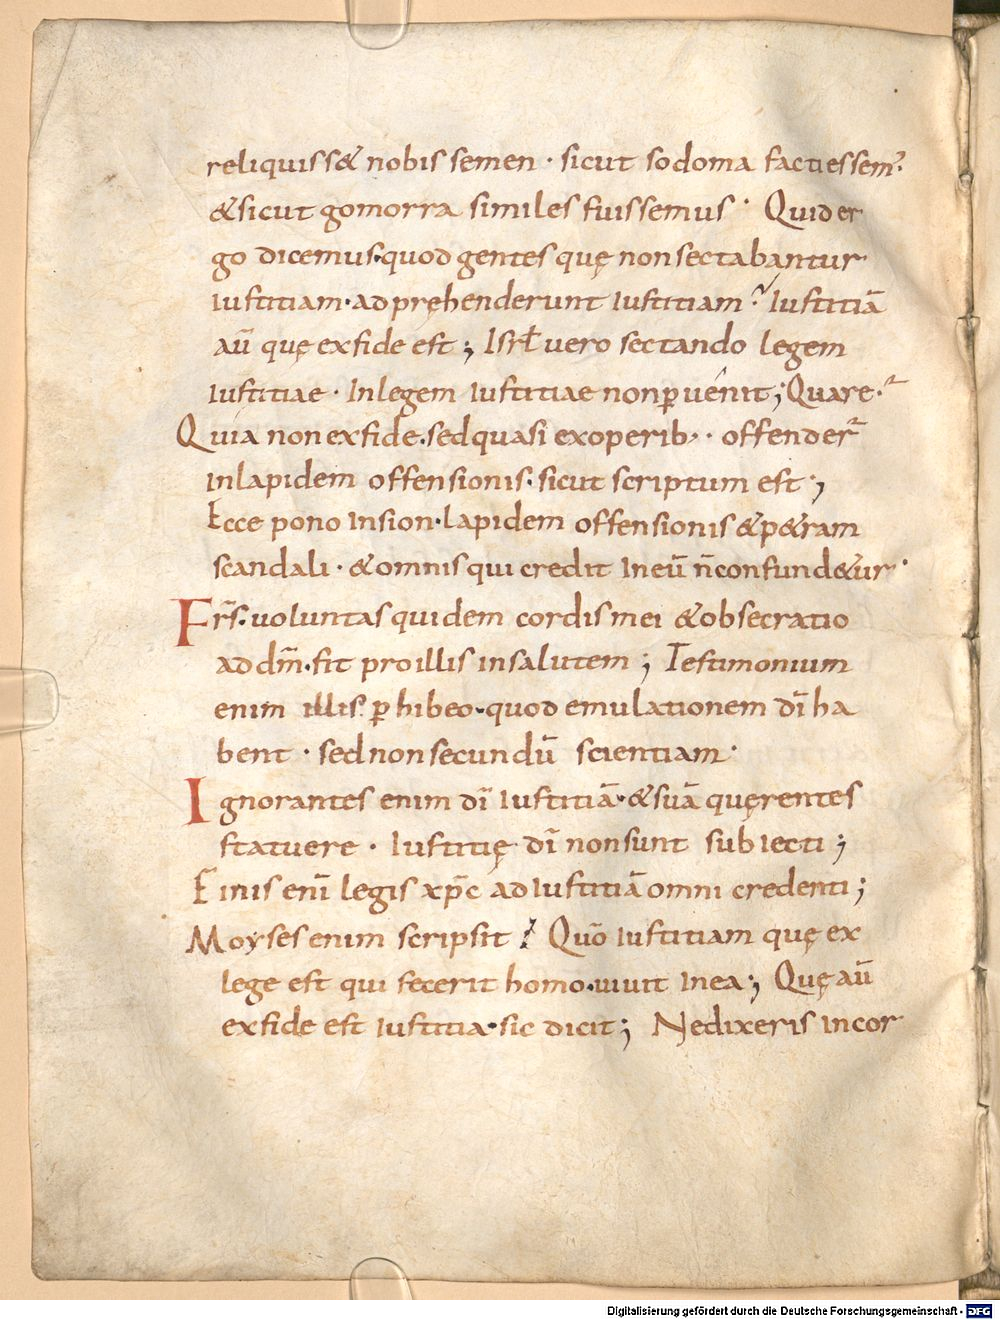 reliquiss& nobis semen · sicut sodoma facti essem᷒·
& sicut gomorra similes fuissemus · Quid er
go dicemus· quod gentes quę non sectabantur
iustitiam· adpręhenderunt iustitiam? Iustitiā
aū quę ex fide est ; Isrł uero sectando legem
iustitiae · In legem iustitiae non ꝑuenit ; Quare?
Quia non ex fide· sed quasi ex operib; · offender̄
in lapidem offensionis· sicut scriptum est ;
Ecce pono in sion· lapidem offensionis & p&ram
scandali · & omnis qui credit In eū n̄ confund&ur ·
Fr̄s· uoluntas quidem cordis mei & obsecratio
ad dm̄· fit pro illis in salutem ; Testimonium
enim illis ꝑhibeo· quod emulationem dī ha
bent · sed non secundū scientiam ·
Ignorantes enim dī iustitiā· & suā quęrentes
statuere · Iustitię dī non sunt subiecti ;
Finis enī legis xp̄c ad iustitiā omni credenti ;
Moyses enim scripsit ; Quō iustitiam quę ex
lege est qui fecerit homo· uiuit in ea ; Quę aū
ex fide est iustitia· sic dicit ; Ne dixeris in cor
Digitalisierung gefördert durch die Deutsche Forschungsgemeinschaft - DFG